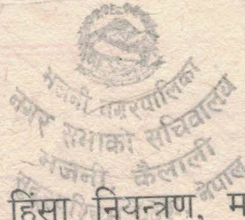 भजनी नगरपालिका
नगर सभाको सचिवालय
भजनी कैलाली
नेपाल
हिंसा नियन्त्रण, म